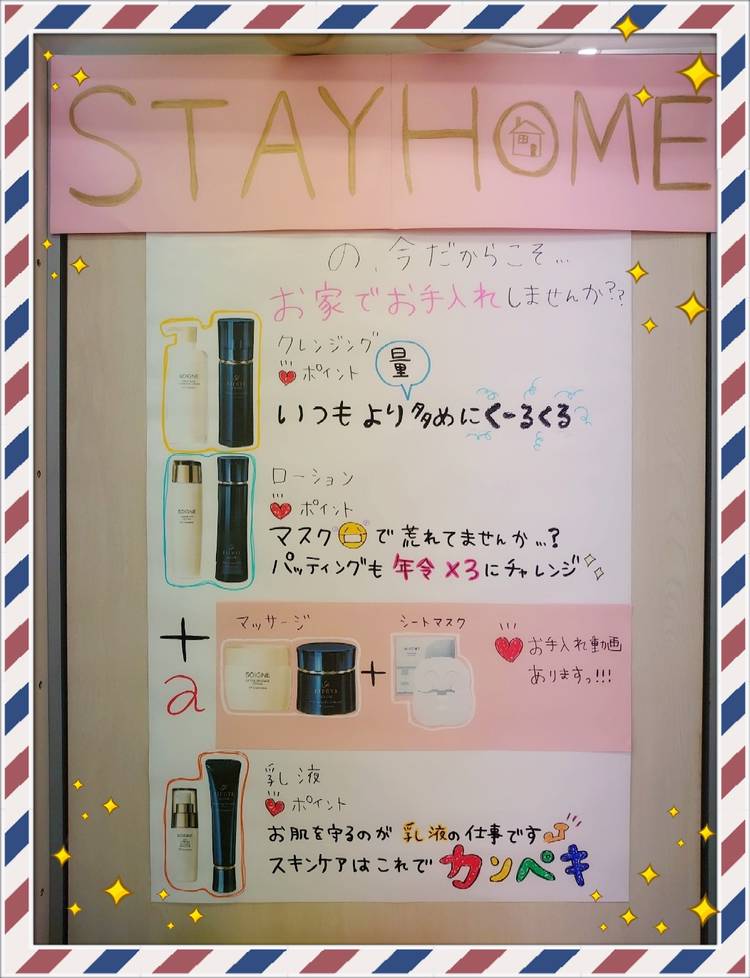 STAYHOME
の、今だからこそ…
お家でお手入れしませんか??
クレンジング
ポイント
量
いつもより多めにくーるくる
SOIGNE
ローション
ポイント
マスクで荒れてませんか…?
パッティングも年令×3にチャレンジ
SOIGNE
+a
マッサージ
シートマスク
SOIGNE
+
お手入れ動画
ありますっ!!!
乳液
ポイント
お肌を守るのが乳液の仕事です
スキンケアはこれでカンペキ